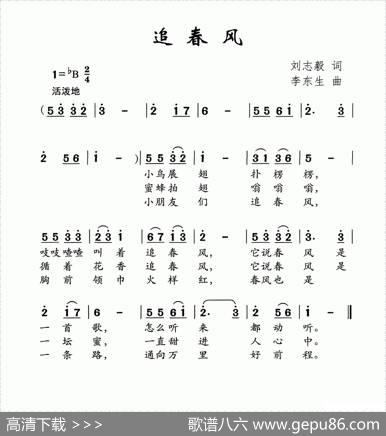 追 春 风
1=♭B 2/4
刘志毅 词
活泼地
李东生 曲
(5 3 3 2 | 3 - | 2 1 7 | 6 - | 5 5 6 1 | 2. 3 |
2 5 6 | 1 - ) | 5 5 3 2 | 1 - | 3 1 3 6 | 5 - |
小鸟展 翅 扑楞 楞,
蜜蜂拍 翅 嗡嗡 嗡,
小朋友 们 追春 风,
5 5 3 3 | 2 2 1 | 6 7 1 3 | 2 - | 5 3 3 2 | 2. 3 |
吱吱喳喳 叫 着 追 春 风, 它说春 风 是
循 着 花 香 追 春 风, 它说春 风 是
胸 前 领 巾 火 样 红, 春风也 是
2 1 7 | 6 - | 5 5 6 1 | 2. 3 | 2 5 6 | 1 - ‖
一 首 歌, 怎么听 来 都 动 听。
一 坛 蜜, 一直甜 进 人 心 中。
一 条 路, 通向万 里 好 前 程。
高清下载 >>>
歌谱八六 www.gepu86.com